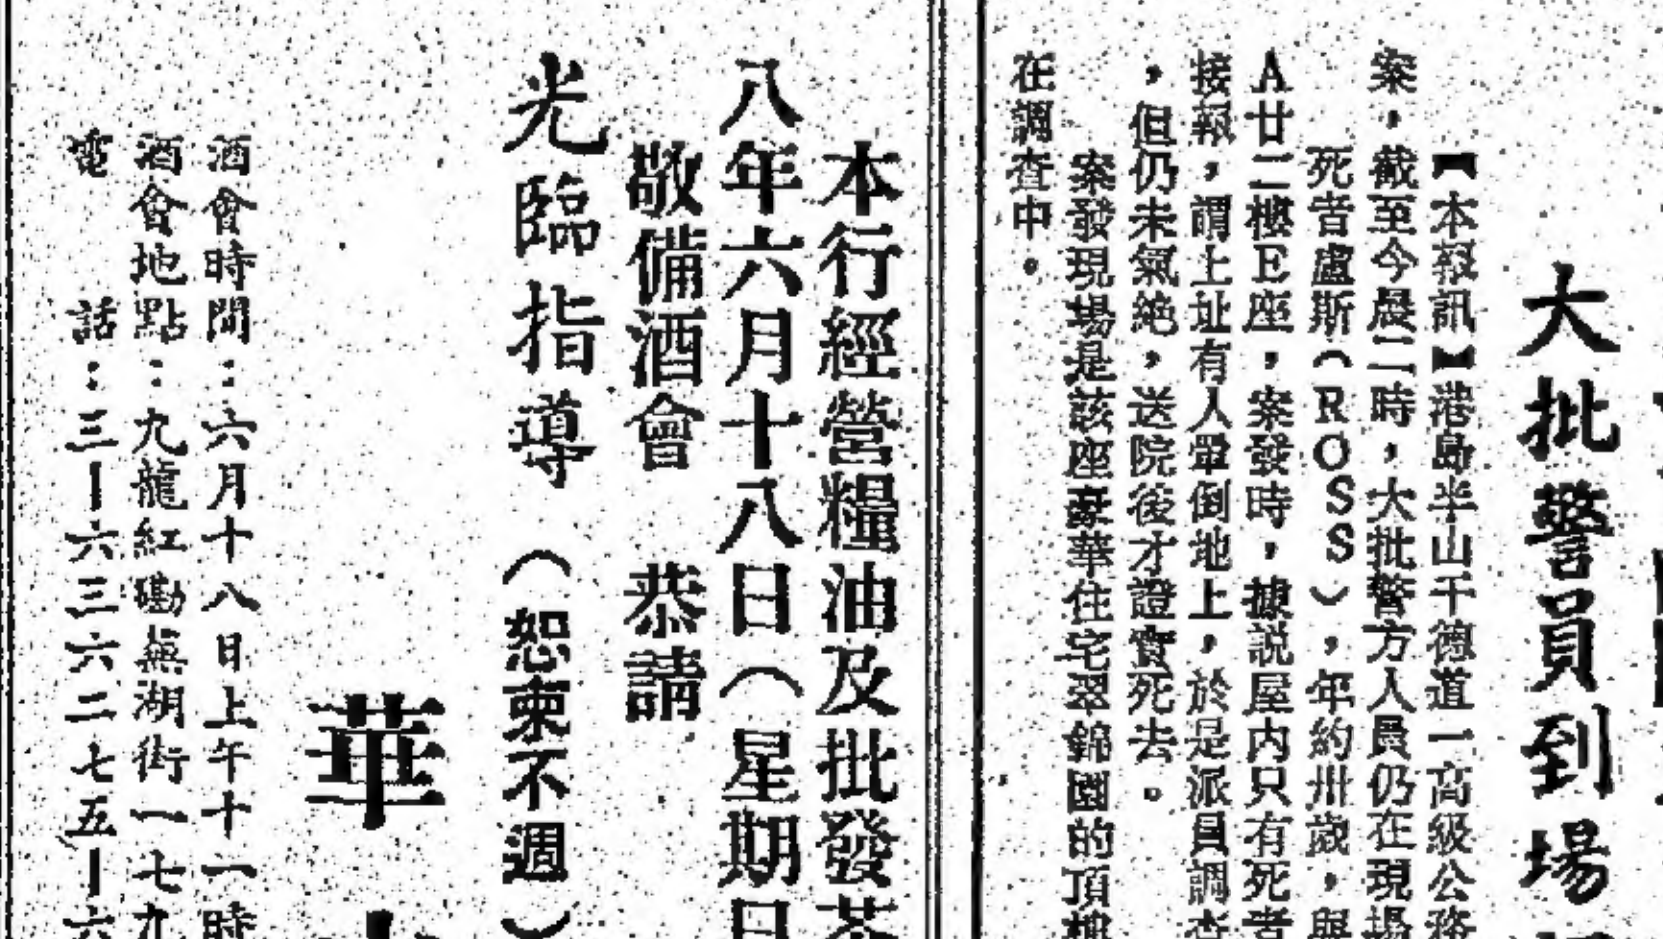 大批警員到場
【本報訊】港島半山干德道一高級公務
案，截至今晨二時，大批警方人員仍在現場
死者盧斯（ROSS），年約卅歲，與
A廿二樓E座，案發時，據説屋内只有死者
接報，謂上址有人暈倒地上，於是派員調查
，但仍未氣絶，送院後才證實死去。
案發現場是該座豪華住宅翠錦園的頂樓
在調查中。
本行經營糧油及批發茶
八年六月十八日（星期日
敬備酒會　恭請
光臨指導（恕柬不週）
華
酒會時間：六月十八日上午十一時
酒會地點：九龍紅磡蕪湖街一七九
電話：三—六三六二七五—六